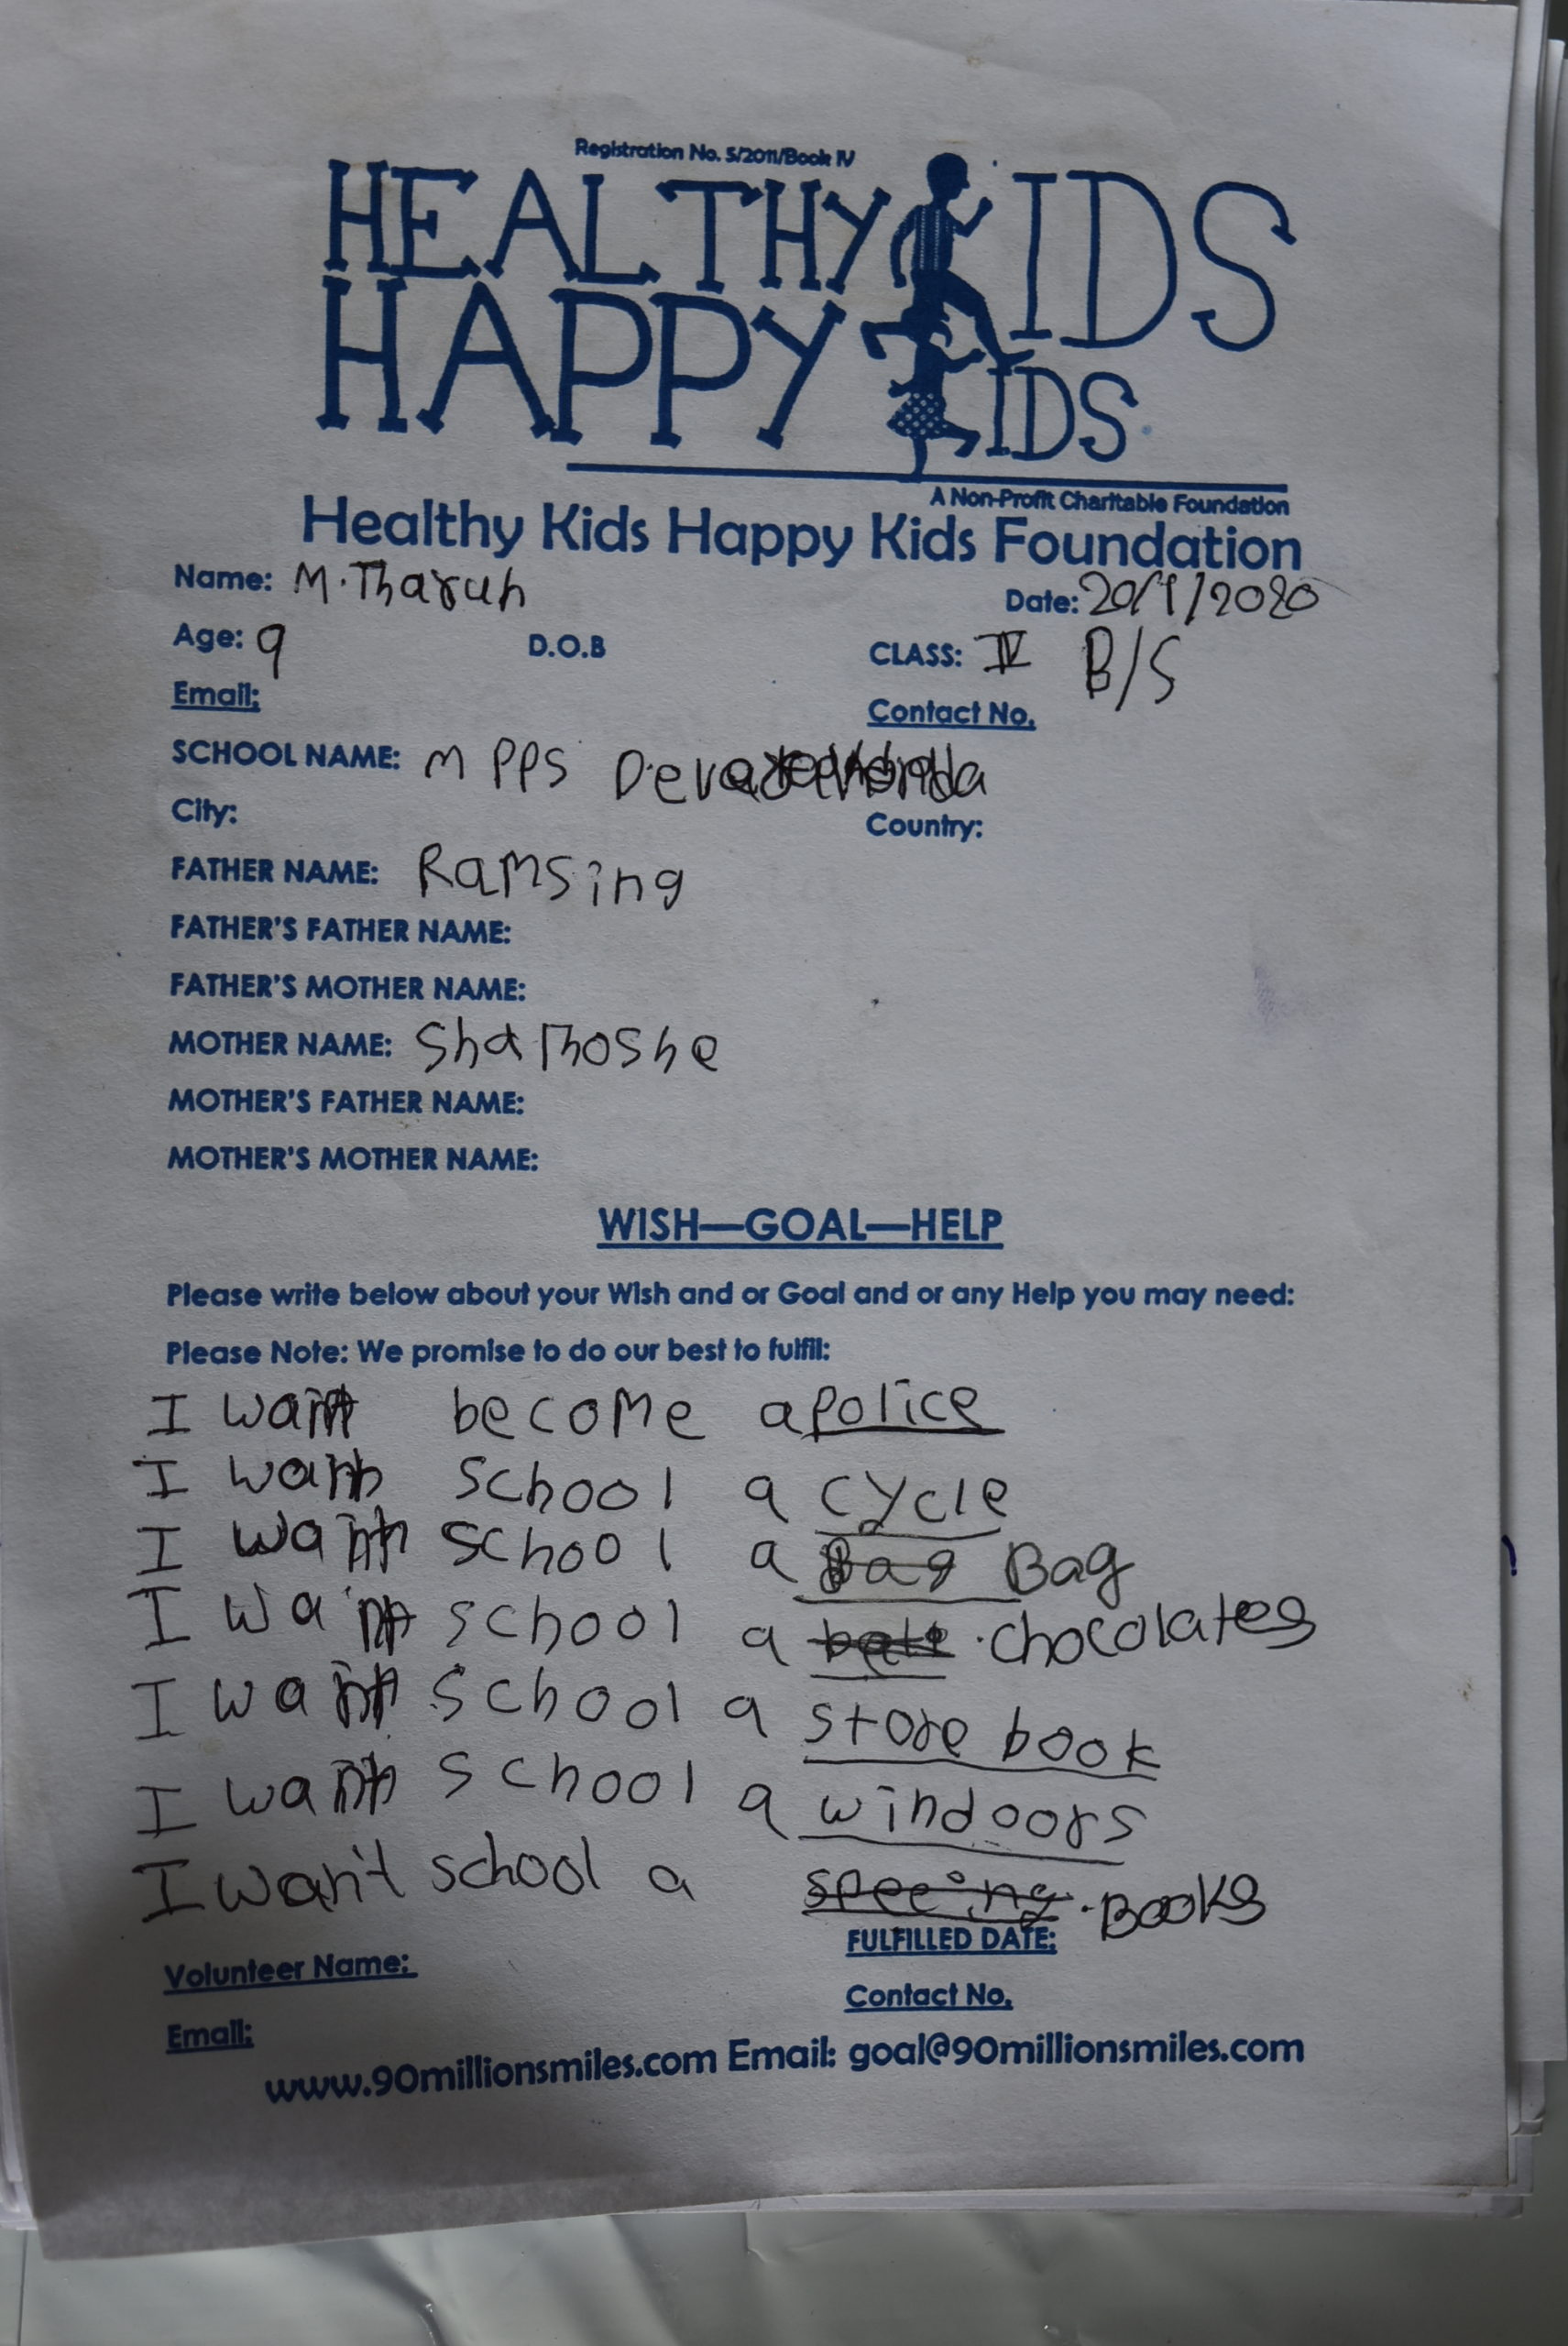 Registration No. 5/2011/Book IV
HEALTHY KIDS
HAPPY KIDS
A Non-Profit Charitable Foundation
Healthy Kids Happy Kids Foundation
Name: M.Tharun Date: 20/1/2020
Age: 9 D.O.B CLASS: IV B/S
Email: Contact No.
SCHOOL NAME: MPPS
City: Country:
FATHER NAME: Ramsing
FATHER'S FATHER NAME:
FATHER'S MOTHER NAME:
MOTHER NAME:
MOTHER'S FATHER NAME:
MOTHER'S MOTHER NAME:
WISH—GOAL—HELP
Please write below about your Wish and or Goal and or any Help you may need:
Please Note: We promise to do our best to fulfil:
I want become a police
I want school a cycle
I want school a Bag Bag
I want school a chocolates
I want school a store book
I want school a windoors
I want school a Books
FULFILLED DATE:
Volunteer Name:
Contact No.
Email:
www.90millionsmiles.com Email: goal@90millionsmiles.com